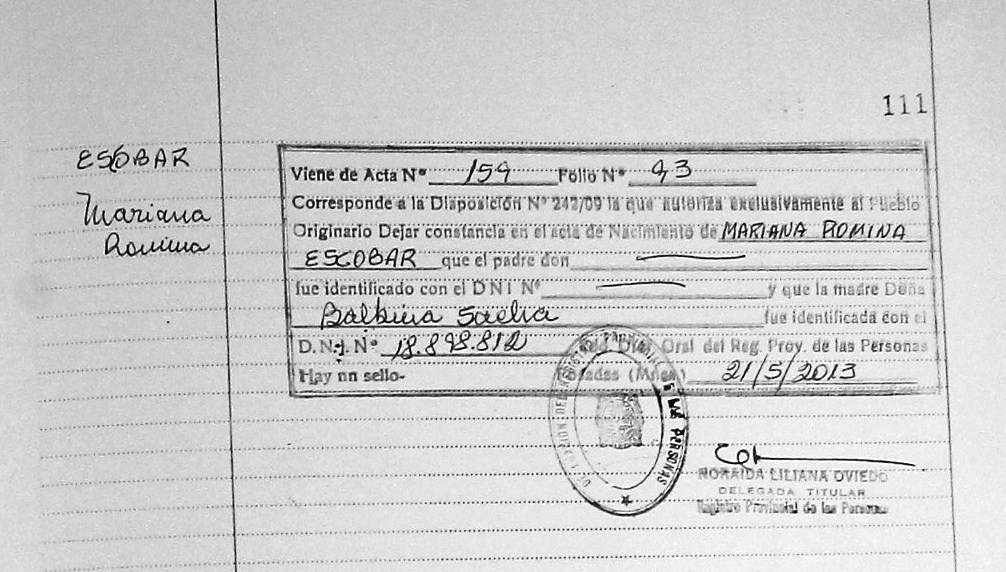 111
ESCOBAR
Mariana
Romina
Viene de Acta Nº 159 Folio Nº 93
Corresponde a la Disposición Nº 242/09 la que autoriza exclusivamente al Pueblo
Originario Dejar constancia en el acta de Nacimiento de MARIANA ROMINA
ESCOBAR que el padre don
fue identificado con el DNI Nº y que la madre Doña
Balbina fue identificada con el
D.N.I. Nº 18.898.812 Oral del Reg. Prov. de las Personas
Hay un sello- Posadas (Mnes) 21/5/2013
DE LAS PERSONAS
NORAIDA LILIANA OVIEDO
DELEGADA TITULAR
Registro Provincial de las Personas